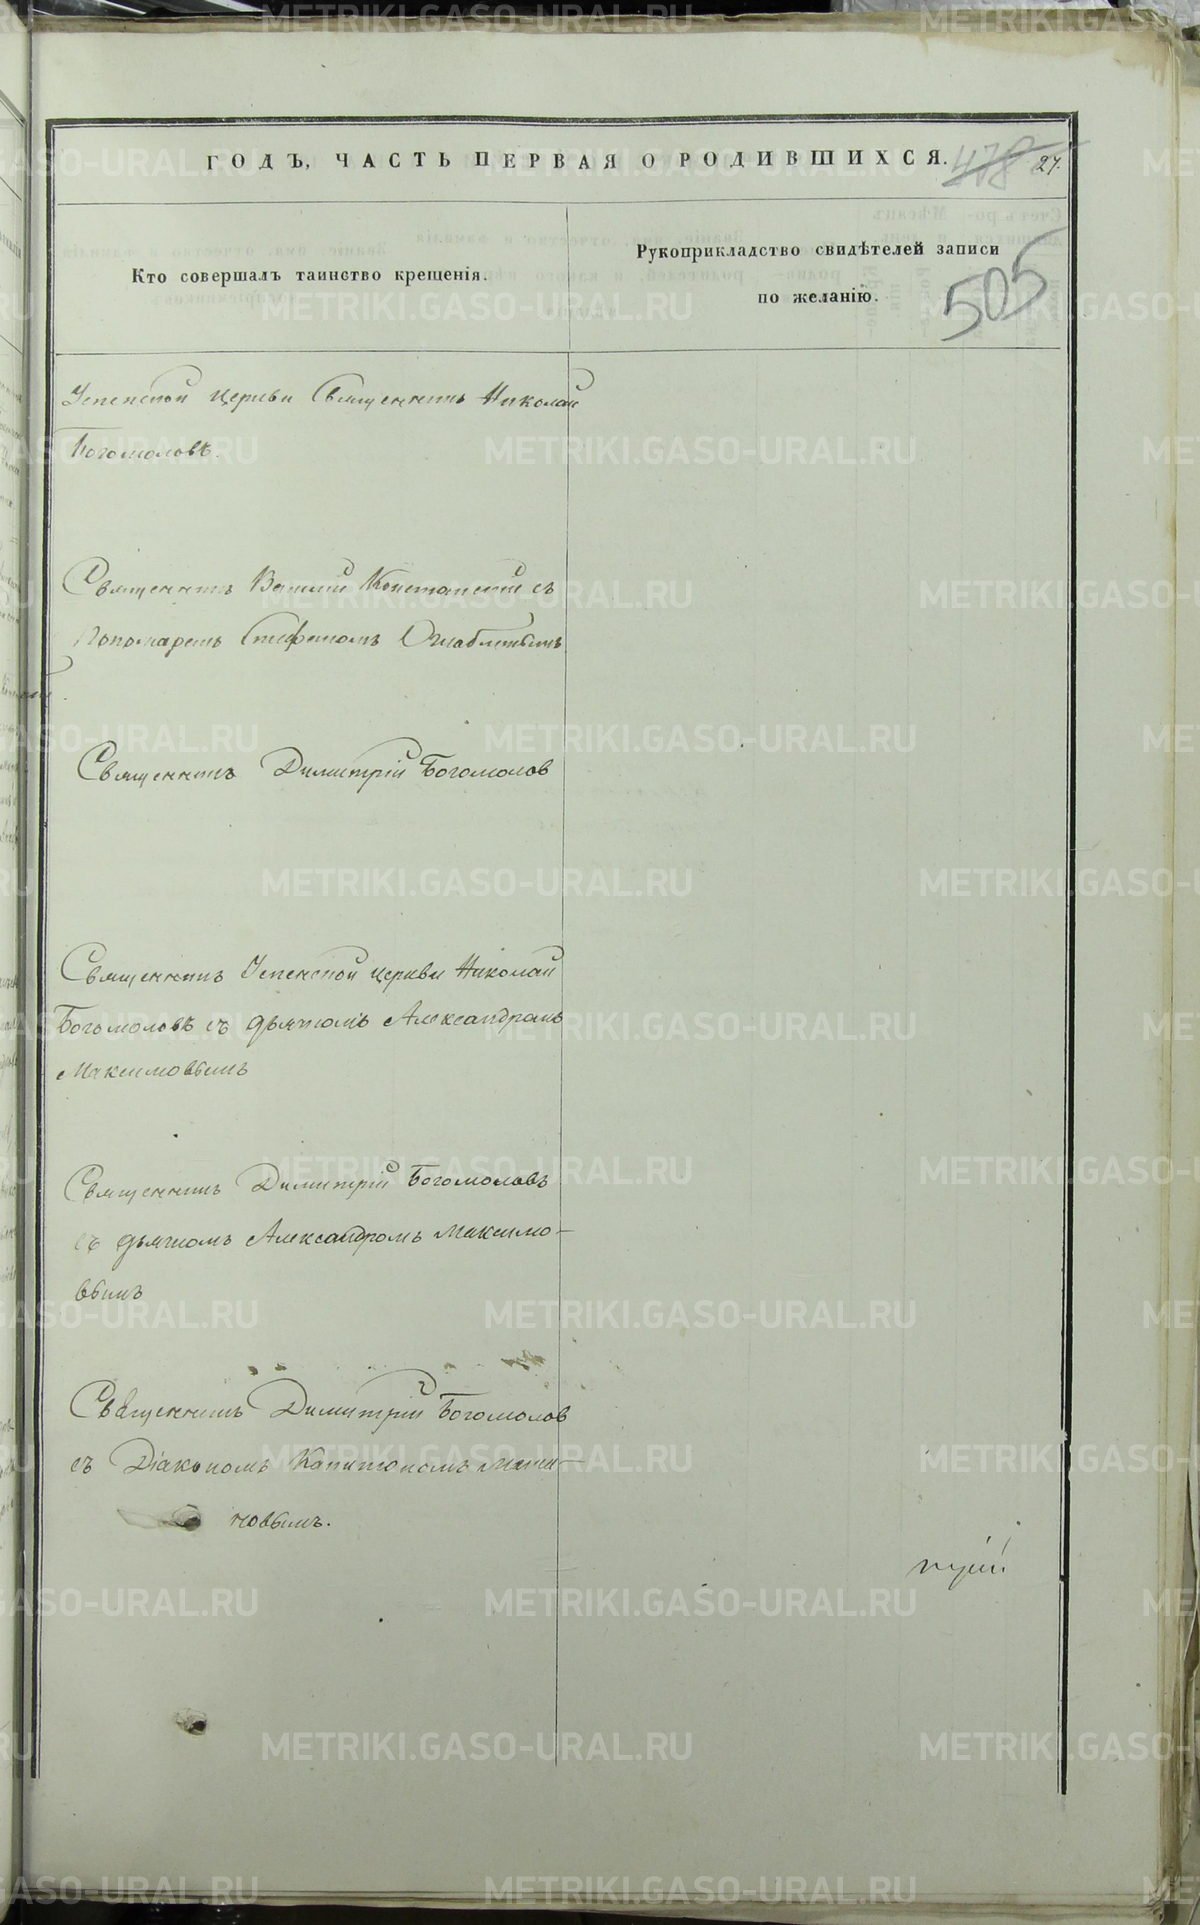 ГОДЪ, ЧАСТЬ ПЕРВАЯ О РОДИВШИХСЯ.
478 27.
Кто совершалъ таинство крещенія.
Рукоприкладство свидѣтелей записи
по желанію.
505
Успенской церкви Священникъ Николай
Богомоловъ.
Священникъ Василий с
Пономаремъ Стефаномъ
Священникъ Димитрій Богомолов
Священникъ Успенской церкви Николай
Богомоловъ съ дьячкомъ Александромъ
Максимовымъ
Священникъ Димитрій Богомоловъ
съ дьячкомъ Александромъ Максимо-
вымъ
Священникъ Димитрій Богомолов
съ Діакономъ Капитономъ
новымъ.
METRIKI.GASO-URAL.RU